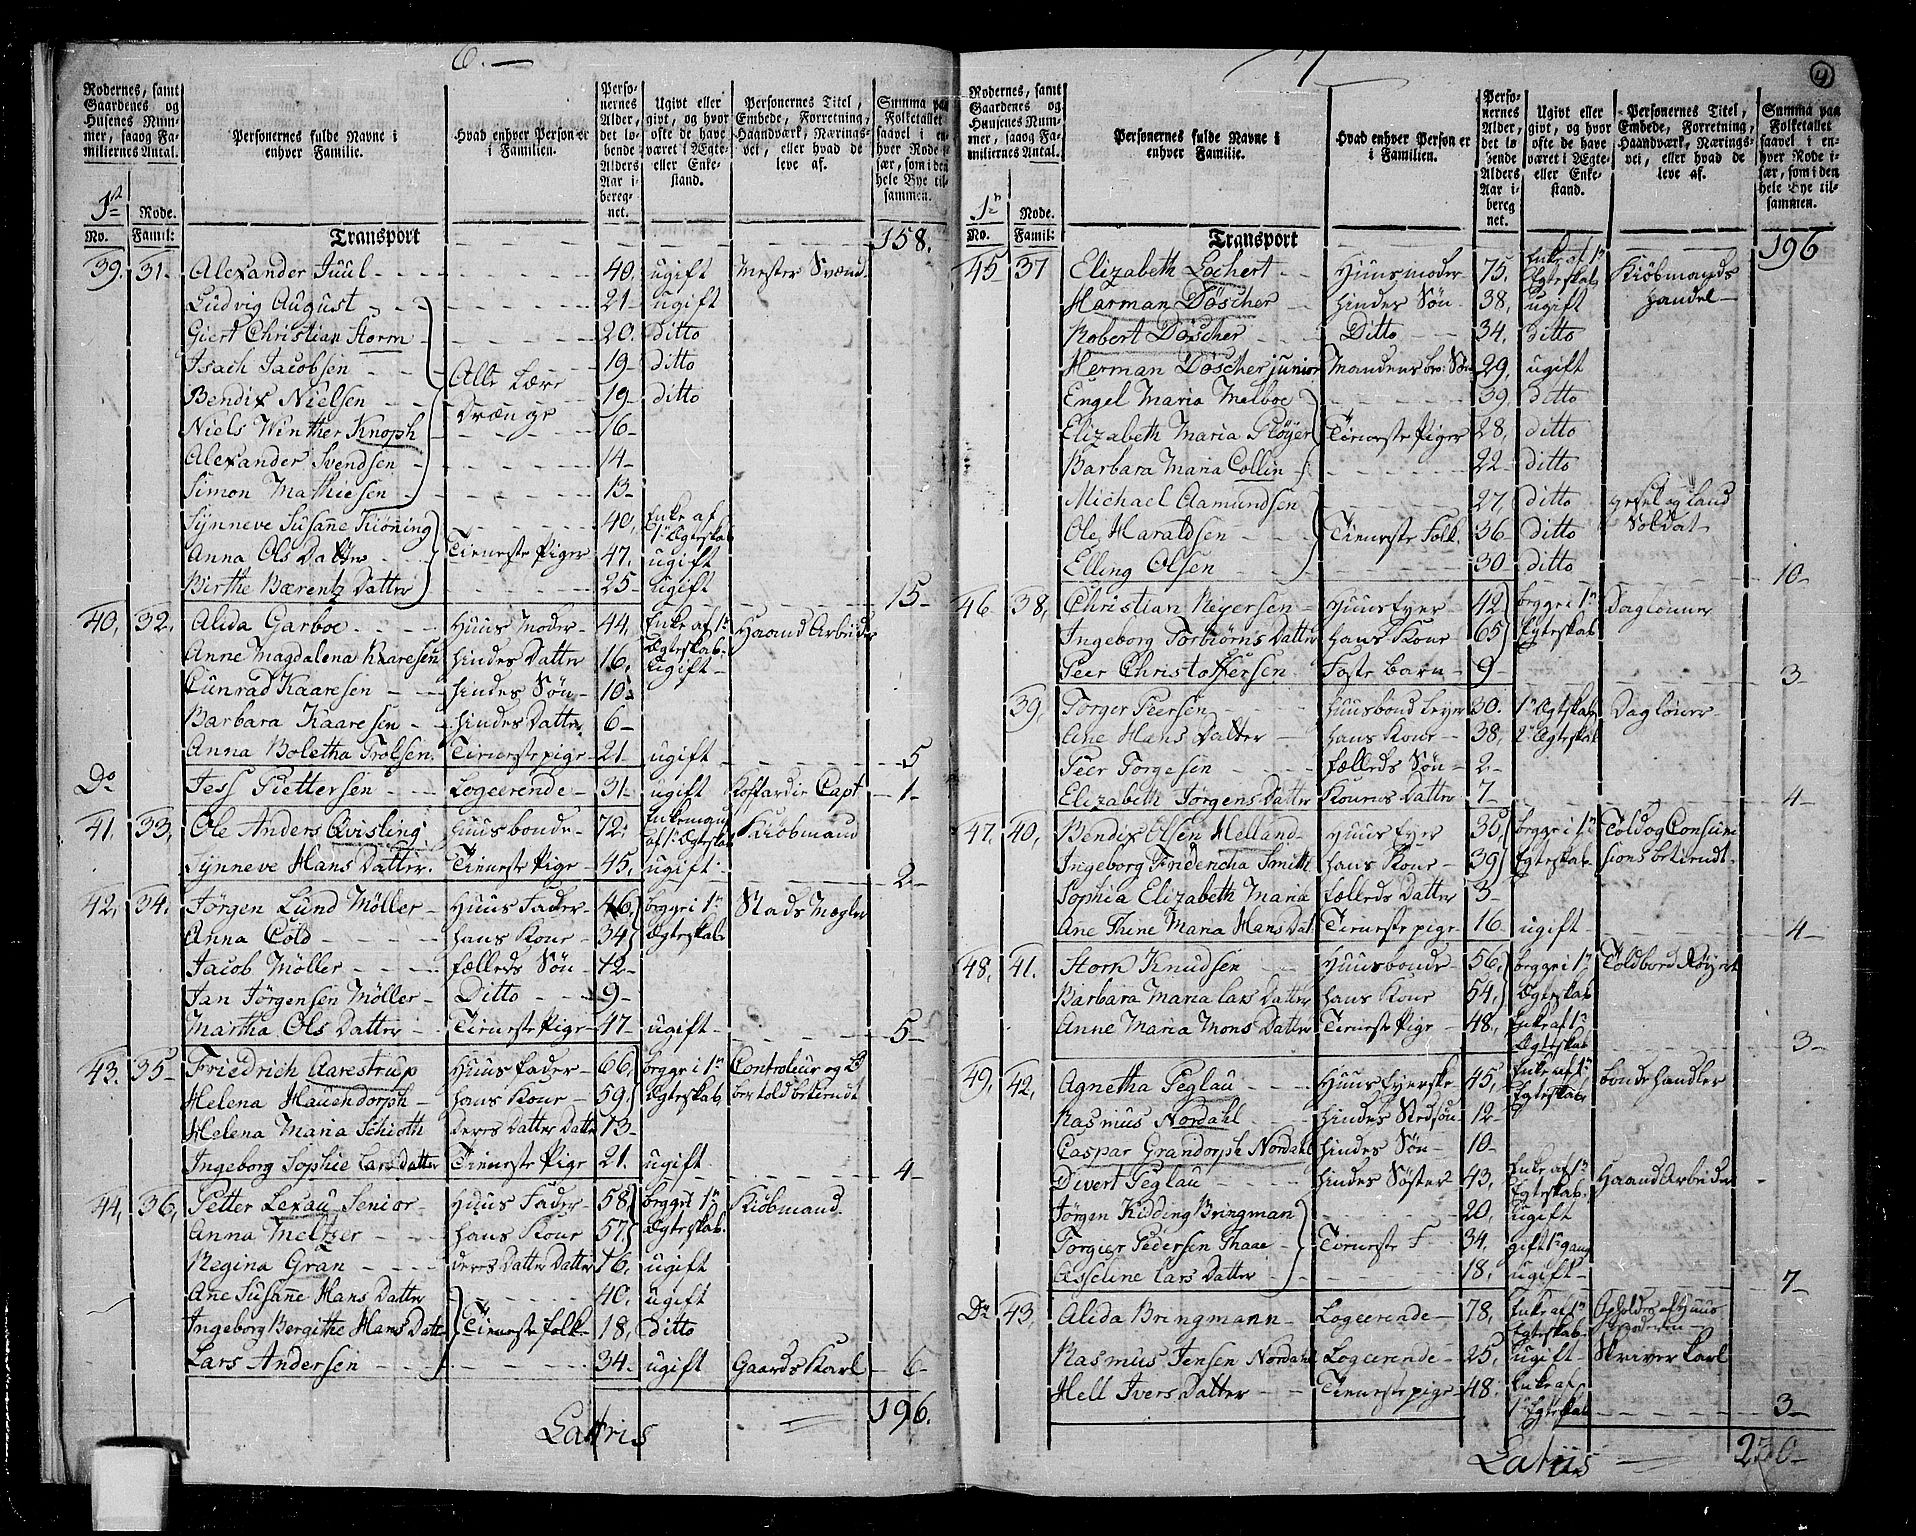 6.
Rodernes, samt Gaardenes og Husenes Nummer, saaog Familiernes Antal.
Personernes fulde Navne i enhver Familie.
Hvad enhver Person er i Familien.
Personernes Alder, det løbende Alders Aar iberegnet.
Ugivt eller givt, og hvor ofte de have været i Ægte- eller Enkestand.
Personernes Titel, Embede, Forretning, Haandværk, Næringsvei, eller hvad de leve af.
Summa paa Folketallet saavel i enhver Rode især, som i den hele Bye tilsammen.
Rode.
No. Famil: Transport 158.
39. 31. Alexander Juul 40. ugift Mester Svend
Ludvig August 21 ugift
Giert Christian Storm 20. ditto
Isach Jacobsen 19 ditto
Alle Lære
Bendix Nielsen 19 ditto
Drænge
Niels Winther Knoph 16
Alexander Svendsen 14
Simon Mathiesen 13
Synneve Susane Kiöning 40. Enke af 1ste Ægteskab
Anna Ols Datter Tieneste Piger 47. ugift
Birthe Bærentz Datter 25 ugift 15
40. 32. Alida Garboe Huus Moder 44. Enke af 1n Ægteskab. Haand Arbeide
Anne Magdalena Kaaresen hindes Datter 16. ugift
Cunrad Kaaresen hindes Søn 10
Barbara Kaaresen hindes Datter 6
Anna Boletha Trolsen. Tieneste pige 21 ugift 5
Do Jess Piettersen Logeerende 31 ugift Koffardie Capt 1
41. 33. Ole Anders Qvisling Huusbonde 72. Enkemand af 1. Ægteskab Kiöbmand
Synneve Hans Datter. Tieneste Pige 45. ugift 2
42. 34. Jörgen Lund Möller Huus Fader 46. begge i 1n Stads Mægler
Anna Cold hans Kone 34 Ægteskab
Jacob Möller fælleds Søn 12
Jan Jörgensen Möller Ditto 9
Martha Ols Datter Tieneste Pige 47 ugift 5
43. 35 Friedrich Aarestrup Huus fader 66. begge i 1n Controleur og
Helena Hauendorph hans Kone 59. Ægteskab bertold betiendt
Helena Maria Schioth deres Datter Datter 13
Ingeborg Sophie Lars datter Tieneste Pige 21. ugift 4
44. 36. Petter Lexau Senior Huus Fader 58. begge i 1n Kiöbmand.
Anna Meltzer hans Kone 57. Ægteskab
Regina Gran deres Datter Datter 16. ugift
Ane Susane Hans Datter 40. ugift
Ingeborg Bergithe Hans Datter Tieneste folk 18. ditto
Lars Andersen 34. ugift Gaards Karl 6
Latris 196.
7
4
Rodernes, samt Gaardenes og Husenes Nummer, saaog Familiernes Antal.
Personernes fulde Navne i enhver Familie.
Hvad enhver Person er i Familien.
Personernes Alder, det løbende Alders Aar iberegnet.
Ugivt eller givt, og hvor ofte de have været i Ægte- eller Enkestand.
Personernes Titel, Embede, Forretning, Haandværk, Næringsvei, eller hvad de leve af.
Summa paa Folketallet saavel i enhver Rode især, som i den hele Bye tilsammen.
Rode.
No. Famil: Transport 196
45 37 Elizabeth Lochert Huusmoder 75. Enke af 1n Ægteskab Kiöbmands
Harman Döscher hindes Søn 38. ugift handel
Robert Döscher Ditto 34. ditto
Herman Döscher junior Mandens bro: Søn 29. ugift
Engel Maria Melboe 39. ditto
Elizabeth Maria Plöyer Tieneste Piger 28. ditto
Barbara Maria Collin 22 ditto
Michael Aamundsen 27. ditto gesel og land Soldat
Ole Haraldsen Tieneste Folk. 36 ditto
Elling Olsen 30 ditto 10
46. 38. Christian Reyersen Huus Eyer 42 begge i 1n Daglönner
Ingeborg Torbiörns Datter hans Kone 65 Egteskab
Peer Christoffersen Foster barn 9 3
39. Torger Peersen Huusbond leyer 30. 1n Ægteskab Daglöner
Ane Hans Datter hans Kone 38. 2 Ægteskab
Peer Torgesen fælleds Søn 2
Elizabeth Jörgens Datter Konens Datter 7 4
47. 40. Bendix Olsen Helland Huus Eyer 35. begge i 1n Told og Consum
Ingeborg Fridericha Smith hans Kone 39 Egteskab sions betiendt
Sophia Elizabeth Maria fælleds Datter 3
Ane Thrine Maria Hans Dat: Tieneste pige 16 ugift 4
48. 41. Stork Knudsen Huusbonde 56. begge i 1n Toldbord Röyert
Barbara Maria Lars Datter hans Kone 54. Ægteskab
Anne Maria Mons Datter Tieneste Pige 48. Enke af 1n Ægteskab 3
49. 42. Agnetha Peglau Huus Eyerske 45. Enke af 1n Egteskab bonde handler
Rasmus Nordahl hindes Stedsøn 12
Caspar Grandorph Nordahl hindes Søn 10
Divert Peglau hindes Söster 43. Enke af 1n Egteskab Haand Arbeider
Jörgen Kidding Bringman 20. ugift
Torgier Pedersen Thaae Tieneste F 34. gift 1n gang
Asseline Lars Datter 18. ugift 7
Do 43. Alida Bringmann Logeerende 78. Enke af 1n Egteskab Opholdes af Huus moderen
Rasmus Jensen Nordahl Logeerende 25. ugift Skriver karl
Hell Ivers Datter Tieneste pige 48. Enke af 1 Egteskab 3
Latus 230